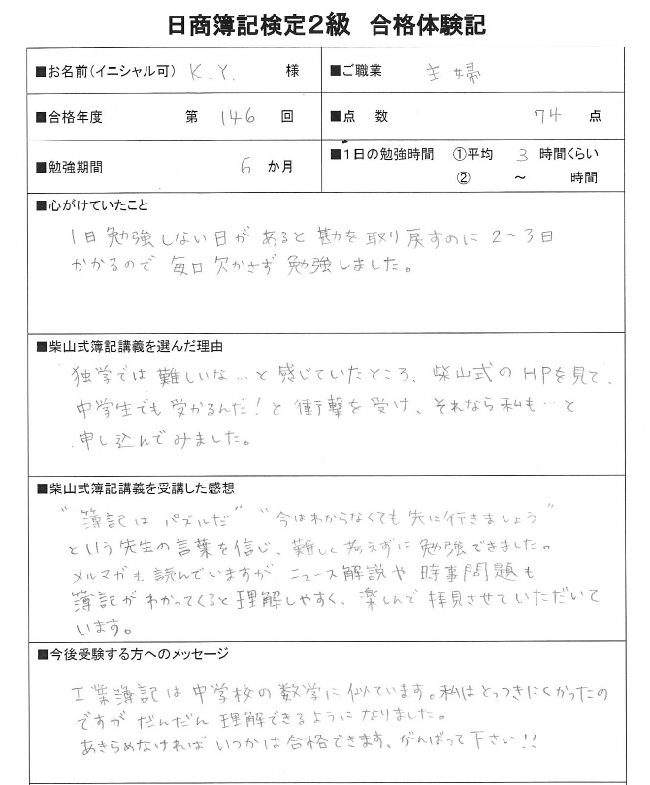 日商簿記検定2級 合格体験記
■お名前(イニシャル可) K.Y. 様
■ご職業 主婦
■合格年度 第 146 回
■点 数 74 点
■勉強期間 6 か月
■1日の勉強時間 ①平均 3 時間くらい
② ～ 時間
■心がけていたこと
1日勉強しない日があると勘を取り戻すのに2～3日
かかるので毎日欠かさず勉強しました。
■柴山式簿記講義を選んだ理由
独学では難しいな…と感じていたところ、柴山式のHPを見て、
中学生でも受かるんだ!と衝撃を受け、それなら私も…と
申し込んでみました。
■柴山式簿記講義を受講した感想
"簿記はパズルだ" "今はわからなくても先に行きましょう"
という先生の言葉を信じ、難しく考えずに勉強できました。
メルマガも読んでいますがニュース解説や時事問題も
簿記がわかってくると理解しやすく、楽しんで拝見させていただいて
います。
■今後受験する方へのメッセージ
工業簿記は中学校の数学に似ています。私はとっつきにくかったの
ですがだんだん理解できるようになりました。
あきらめなければいつかは合格できます、がんばって下さい!!